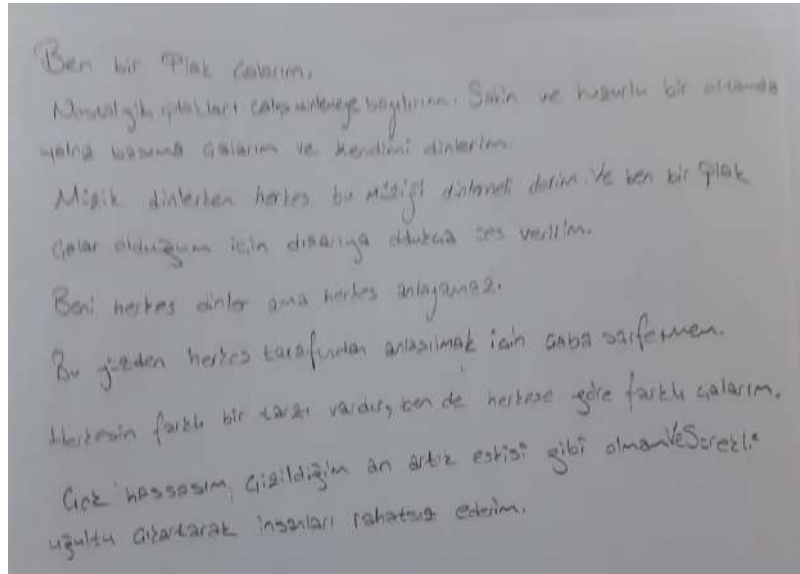 Ben bir Plak Çalarım.
Nostaljik plakları çalıp dinlemeye bayılırım. Sakin ve huzurlu bir ortamda
yalnız başıma çalarım ve kendimi dinlerim.
Müzik dinlerken herkes bu müziği dinlemeli derim. Ve ben bir Plak
Çalar olduğum için dışarıya oldukça ses veririm.
Beni herkes dinler ama herkes anlayamaz.
Bu yüzden herkes tarafından anlaşılmak için çaba sarfetmem.
Herkesin farklı bir tarzı vardır, ben de herkese göre farklı çalarım.
Çok hassasım, Çizildiğim an artık eskisi gibi olmam Ve Sürekli
uğultu çıkartarak insanları rahatsız ederim.